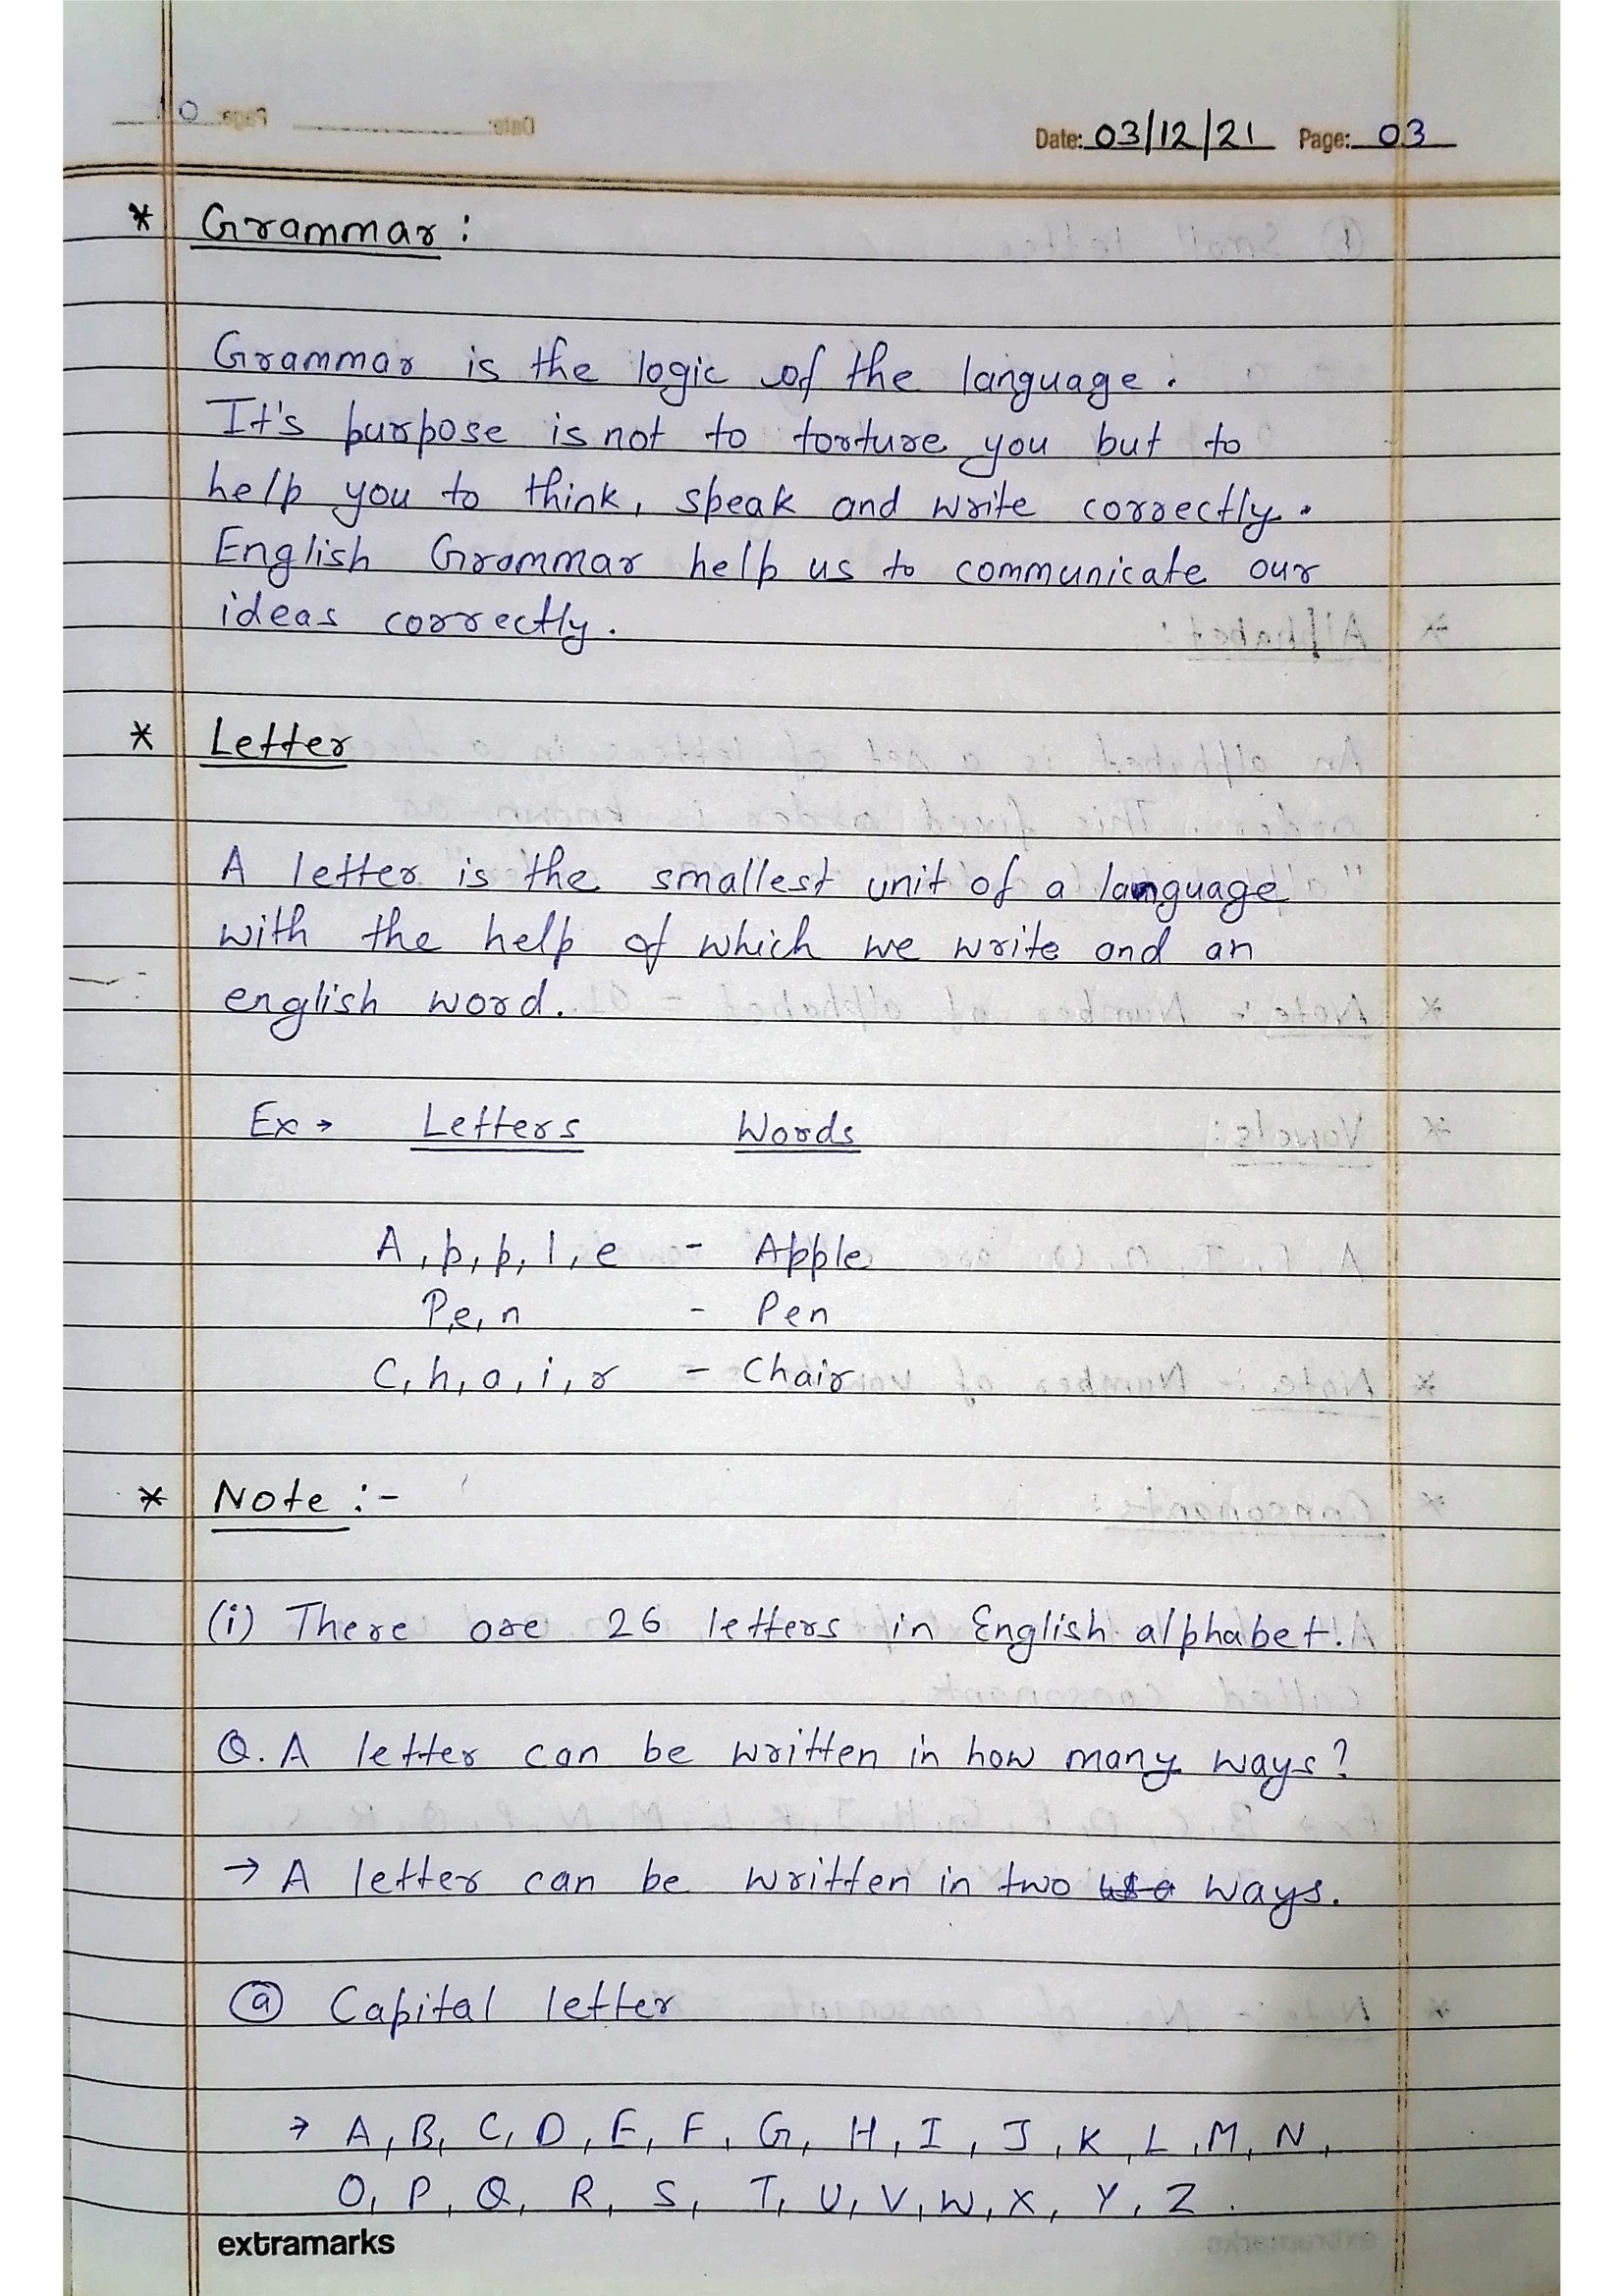 Date: 03/12/21 Page: 03
* Grammar :
Grammar is the logic of the language.
It's purpose is not to torture you but to
help you to think, speak and write correctly.
English Grammar help us to communicate our
ideas correctly.
* Letter
A letter is the smallest unit of a language
with the help of which we write and an
english word.
Ex → Letters Words
A, p, p, l, e - Apple
P, e, n - Pen
C, h, a, i, r - Chair
* Note :-
(i) There are 26 letters in English alphabet.
Q. A letter can be written in how many ways?
→ A letter can be written in two ways.
ⓐ Capital letter
→ A, B, C, D, E, F, G, H, I, J, K, L, M, N,
O, P, Q, R, S, T, U, V, W, X, Y, Z.
extramarks